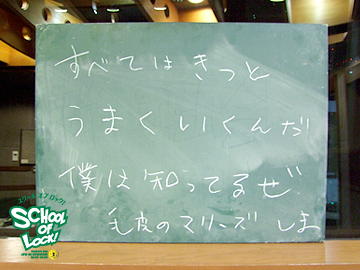 すべてはきっと
うまくいくんだ
僕は知ってるぜ
毛皮のマリーズ しま
スクールオブロック!
SCHOOL
OF
LOCK!